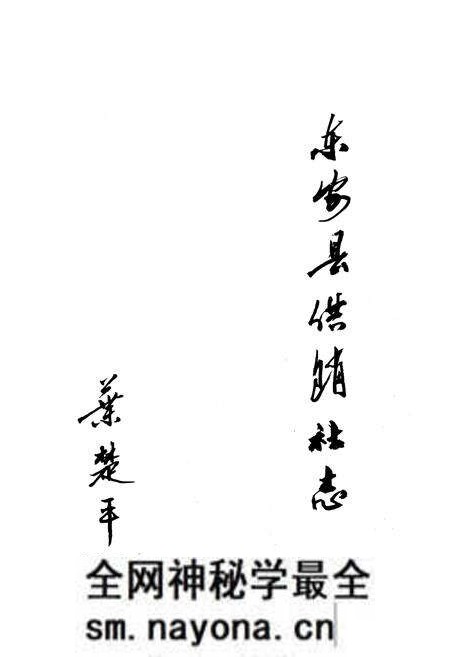 东安县供销社志
葉楚平
全网神秘学最全
sm.nayona.cn